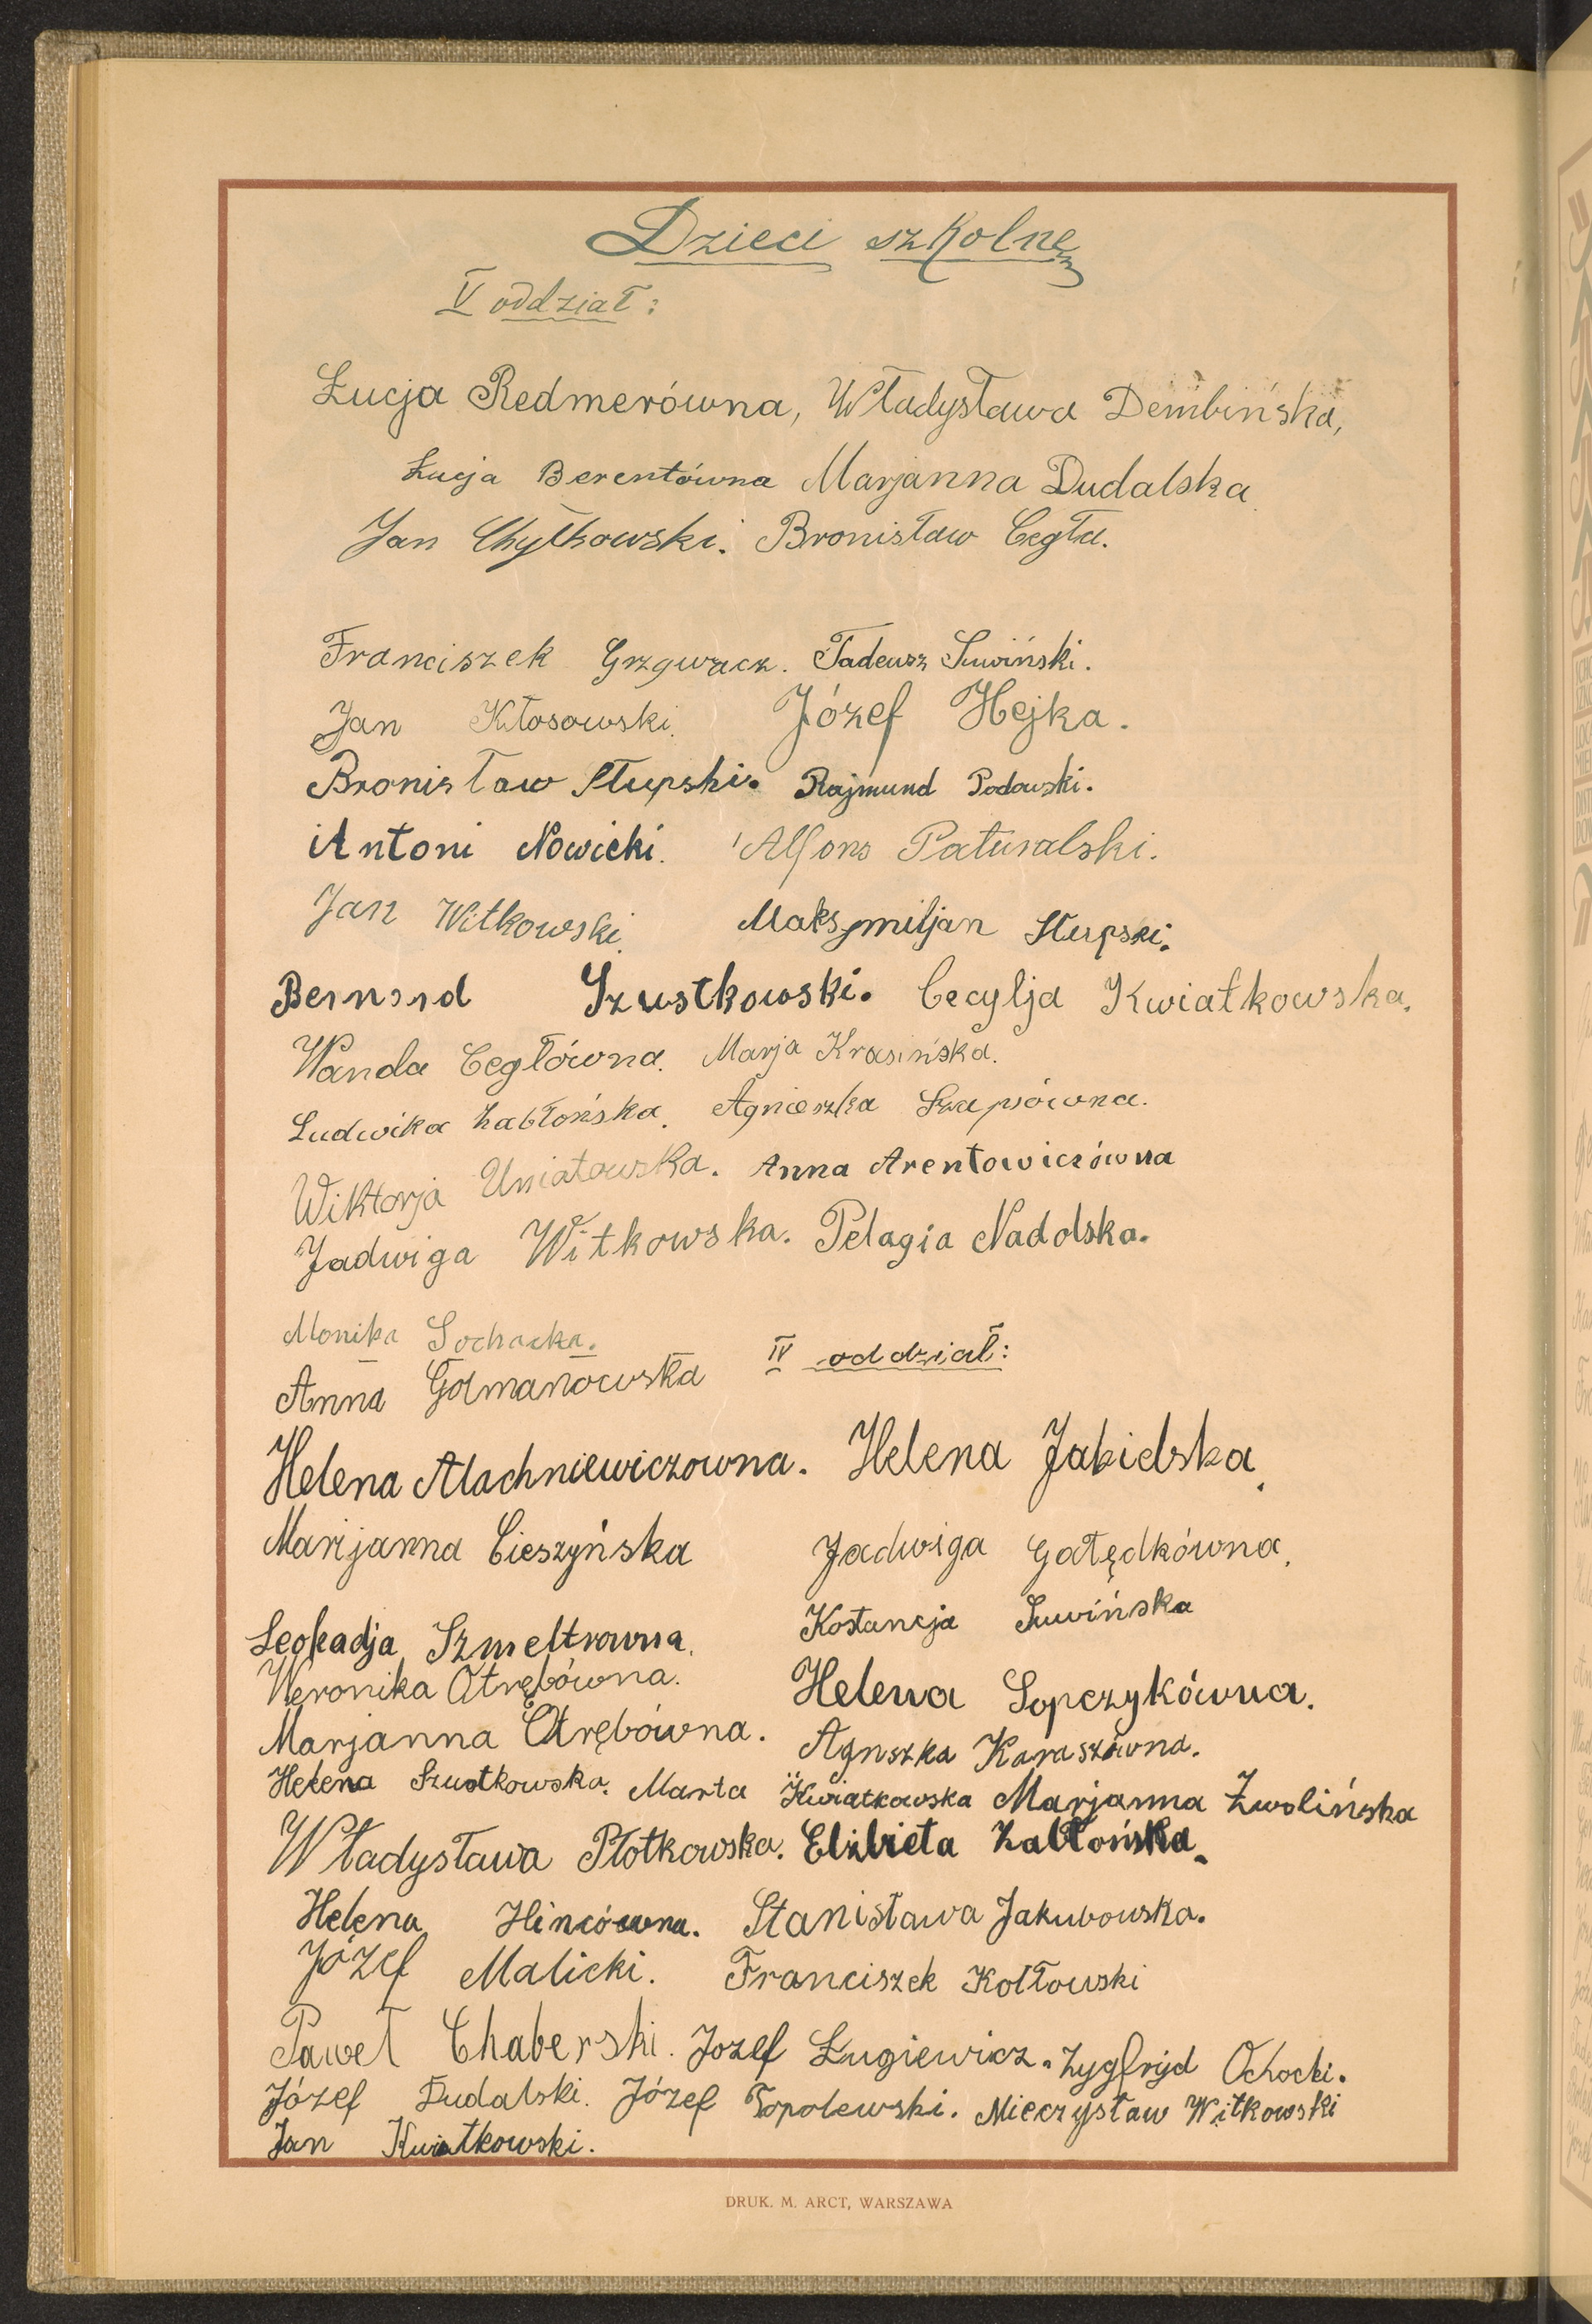 Dzieci szkolne
V oddział:
Łucja Redmerówna, Władysława Dembińska,
Łucja Berentówna Marjanna Dudalska
Jan Chyłkowski. Bronisław Cegła.
Franciszek Grzywacz. Tadeusz Suwiński.
Jan Kłosowski. Józef Hejka.
Bronisław Słupski. Rajmund Podowski.
Antoni Nowicki. Alfons Paturalski.
Jan Witkowski. Maksymiljan Słupski.
Bernard Szustkowski. Cecylja Kwiatkowska.
Wanda Cegłówna. Marja Krasińska.
Ludwika Zabłońska. Agnieszka
Wiktorja Uniatowska. Anna Arentowiczówna
Jadwiga Witkowska. Pelagia Nadolska.
Monika Sochacka.
IV oddział:
Anna Golmanowska
Helena Machniewiczowna. Helena Jabielska.
Marijanna Cieszyńska Jadwiga Gałędkówna.
Kostancja Suwińska
Leokadja Szmeltrowna.
Weronika Otrębówna. Helena Sopczykówna.
Marjanna Otrębówna. Agnszka Karaszówna.
Helena Szustkowska. Marta Kwiatkowska Marjanna Zwolińska
Władysława Płotkowska. Elżbieta Zabłońska.
Helena Hincówna. Stanisława Jakubowska.
Józef Malicki. Franciszek Kołłowski
Paweł Chaberski. Jozef Ługiewicz. Zygfryd Ochocki.
Józef Dudalski. Józef Topolewski. Mieczysław Witkowski
Jan Kwiatkowski.
DRUK. M. ARCT, WARSZAWA